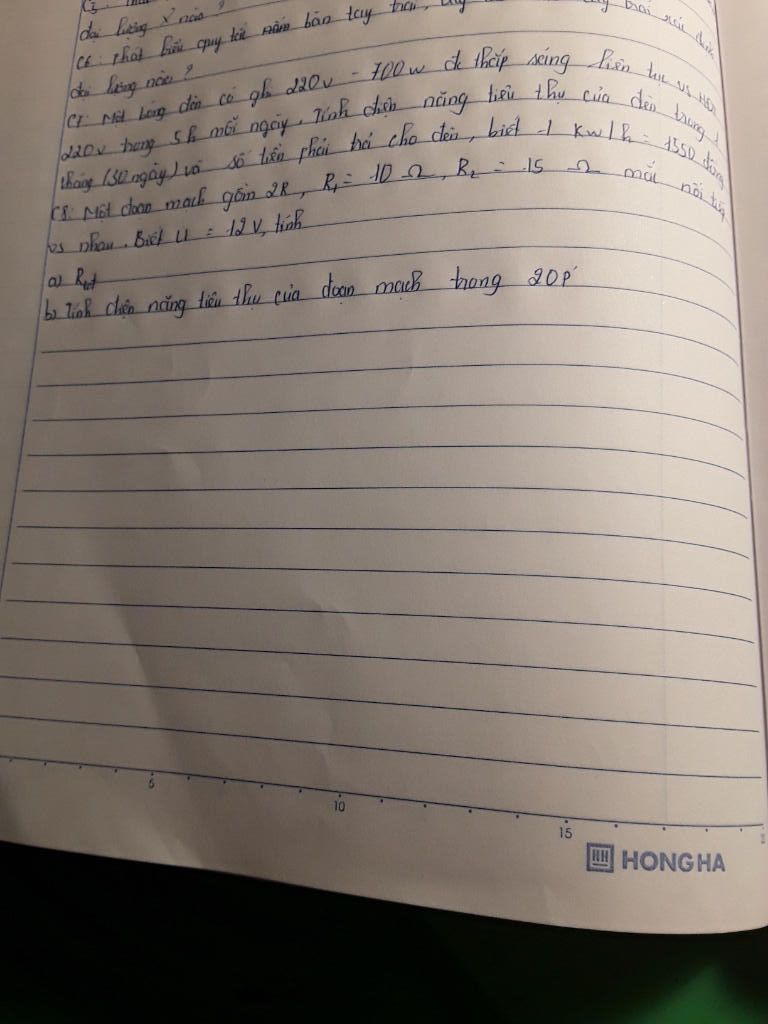 đại lượng nào?
C6: Phát biểu quy tắc nắm bàn tay trái,
đại lượng nào?
C7: Một bóng đèn có ghi 220V - 700W đc thắp sáng liên tục vs HĐT
220V trong 5h mỗi ngày. Tính điện năng tiêu thụ của đèn trong 1
tháng (30 ngày) và số tiền phải trả cho đèn, biết 1 Kw/h = 1550 đồng
C8: Một đoạn mạch gồm 2R, R₁ = 10 Ω, R₂ = 15 Ω mắc nối tiếp
vs nhau. Biết U = 12V, tính
a) Rtđ
b) Tính điện năng tiêu thụ của đoạn mạch trong 20p'
5
10
15
HH HONG HA